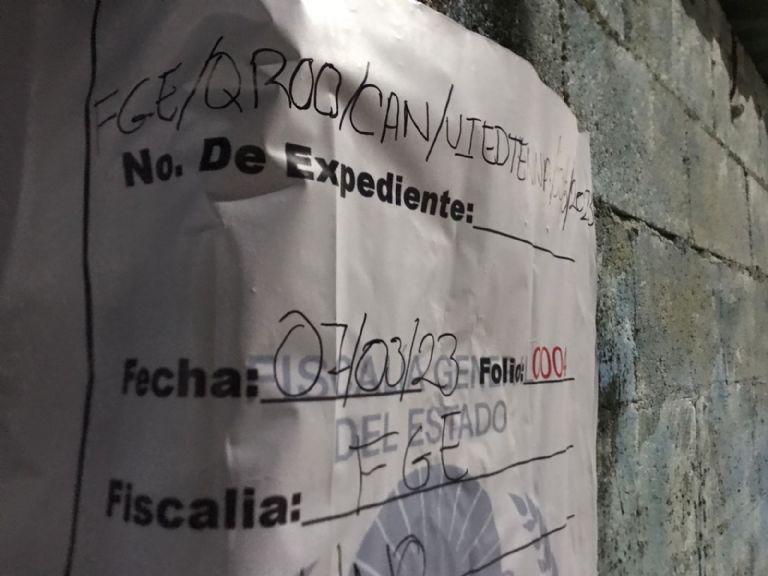 FGE/QROO/CAN/
No. De Expediente:
Fecha: 07/03/23 Folio:
FISCALIA GENERAL
DEL ESTADO
Fiscalia: FGE